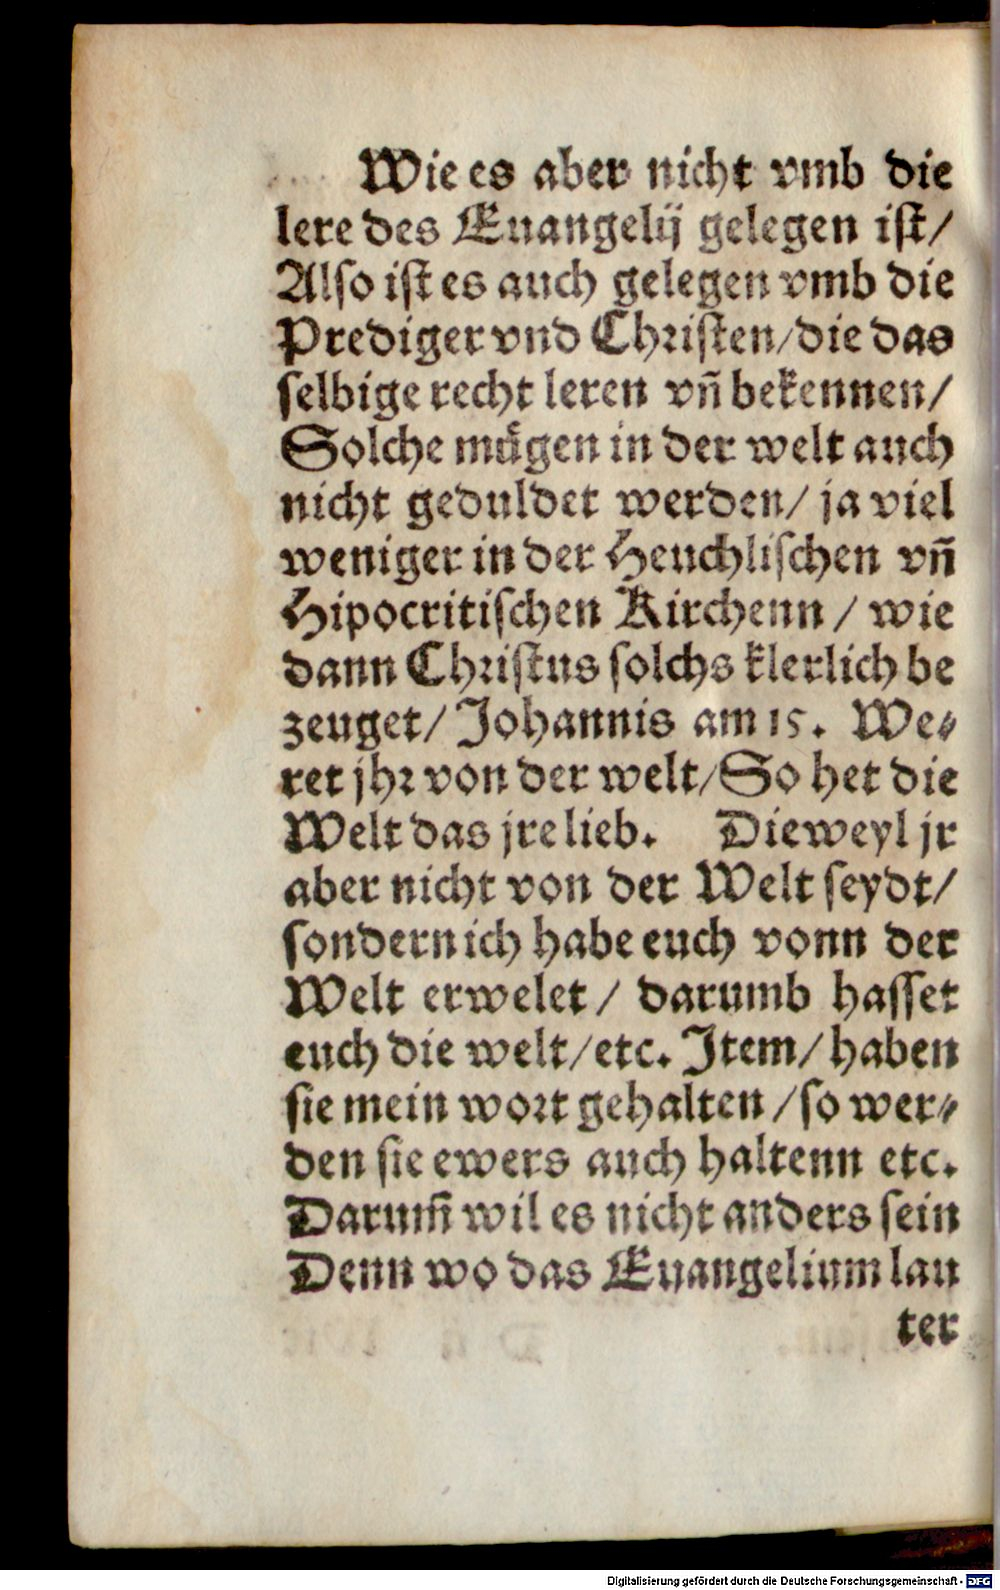 Wie es aber nicht vmb die
lere des Euangelij gelegen ist/
Also ist es auch gelegen vmb die
Prediger vnd Christen/die das
selbige recht leren vñ bekennen/
Solche mügen in der welt auch
nicht geduldet werden/ ja viel
weniger in der Heuchlischen vñ
Hipocritischen Kirchenn / wie
dann Christus solchs klerlich be
zeuget/ Johannis am 15. We⸗
ret jhr von der welt/So het die
Welt das jre lieb. Dieweyl jr
aber nicht von der Welt seydt/
sondern ich habe euch vonn der
Welt erwelet / darumb hasset
euch die welt/etc. Item/ haben
sie mein wort gehalten /so wer⸗
den sie ewers auch haltenn etc.
Darum̃ wil es nicht anders sein
Denn wo das Euangelium lau
ter
Digitalisierung gefördert durch die Deutsche Forschungsgemeinschaft - DFG